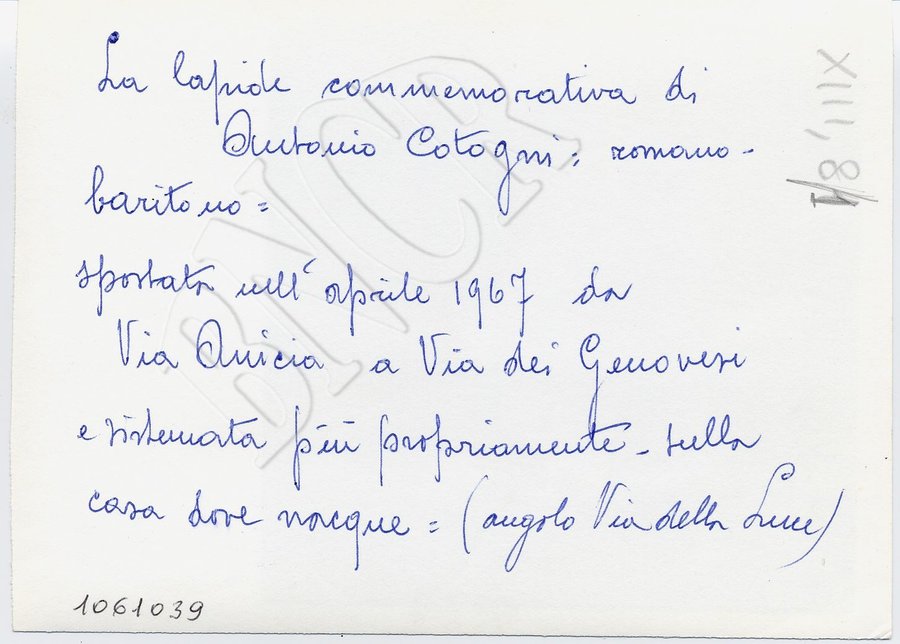 La lapide commemorativa di
Antonio Cotogni = romano -
baritono =
spostata nell'aprile 1967 da
Via Anicia a Via dei Genovesi
e sistemata più propriamente - sulla
casa dove nacque = (angolo Via della Luce)
1061039
BNCR